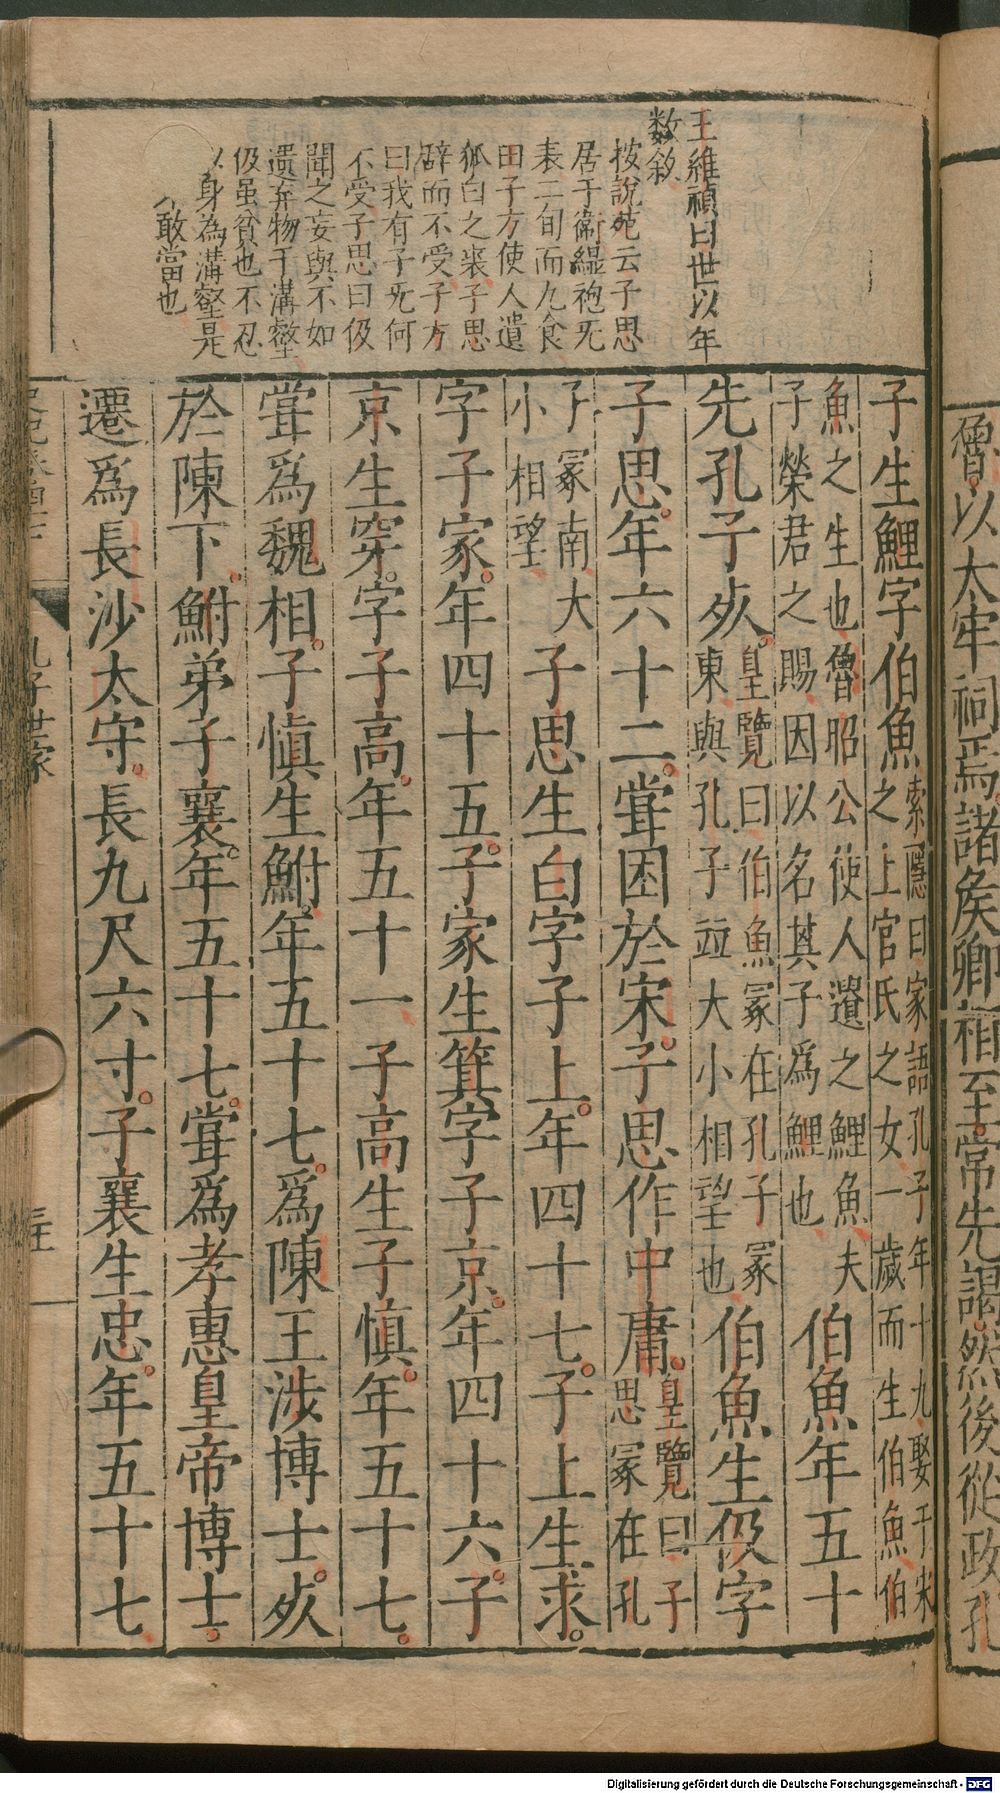 僧以太牢祠焉諸侯卿相至常先謁然後從政孔
王維禎曰世以年
数敘
按說苑云子思
居于衛縕袍旡
表二旬而九食
田子方使人遺
狐白之裘子思
辭而不受子方
曰我有子旡何
不受子思曰伋
聞之妄與不如
遺弃物于溝壑
伋虽貧也不忍
以身為溝壑是
敢當也
子生鯉字伯魚
索隱曰家語孔子年十九娶于宋
之上官氏之女一歲而生伯魚伯
魚之生也魯昭公使人遺之鯉魚夫
子榮君之賜因以名其子爲鯉也
伯魚年五十
先孔子歿
皇覽曰伯魚冢在孔子冢
東與孔子並大小相望也
伯魚生伋字
子思年六十二嘗困於宋子思作中庸
皇覽曰子
思冢在孔
子冢南大
小相望
子思生白字子上年四十七子上生求
字子家年四十五子家生箕字子京年四十六子
京生穿字子高年五十一子高生子慎年五十七
嘗爲魏相子慎生鮒年五十七爲陳王涉博士歿
於陳下鮒弟子襄年五十七嘗爲孝惠皇帝博士
遷爲長沙太守長九尺六寸子襄生忠年五十七
孔子世家
Digitalisierung gefördert durch die Deutsche Forschungsgemeinschaft - DFG